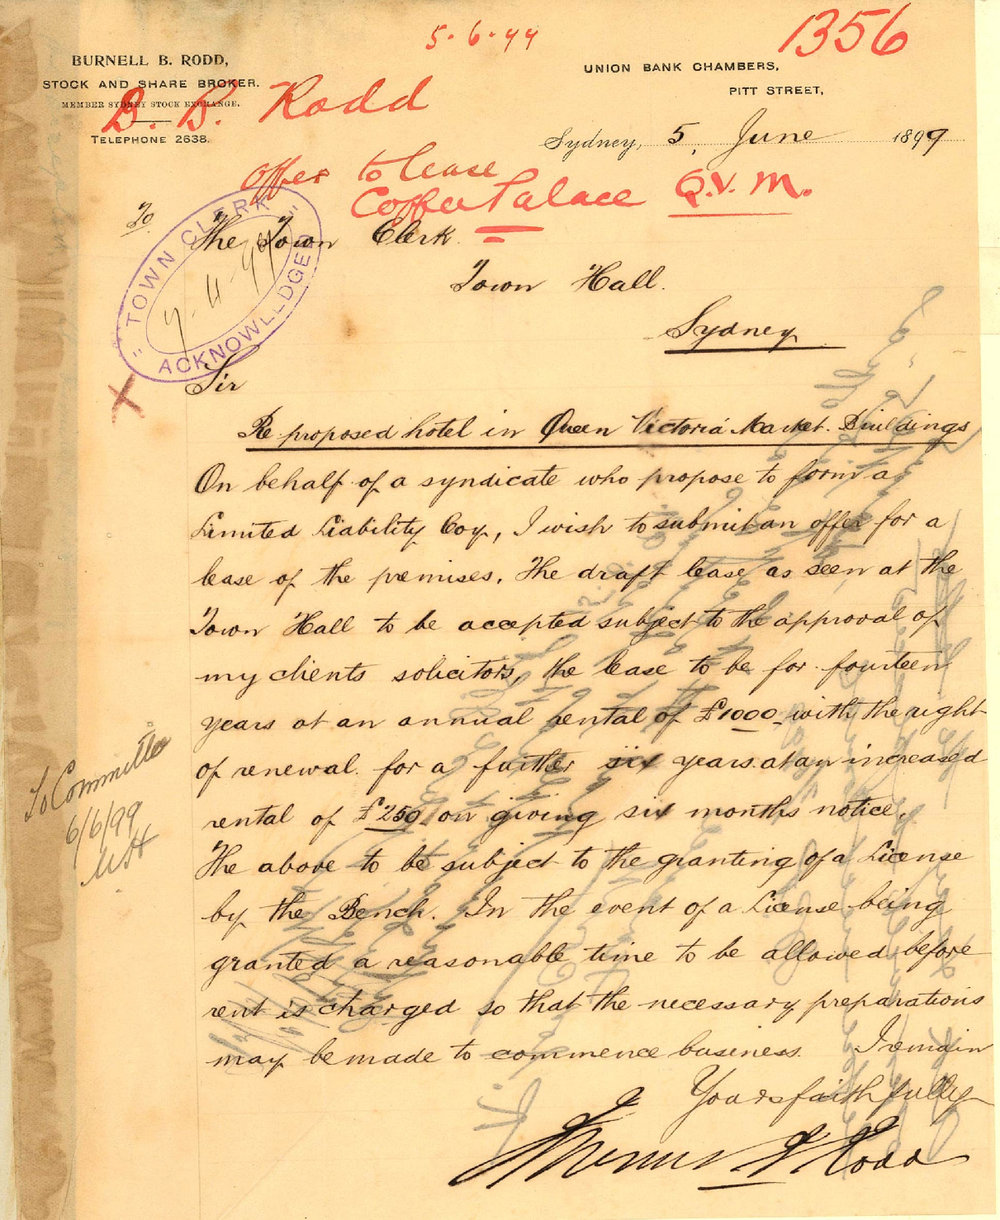 5·6·99
1356
BURNELL B. RODD,
STOCK AND SHARE BROKER.
MEMBER SYDNEY STOCK EXCHANGE.
TELEPHONE 2638.
UNION BANK CHAMBERS,
PITT STREET,
Sydney, 5 June 1899
B. B. Rodd
Offer to lease
Coffee Palace Q.V.M.
To
The Town Clerk.
Town Hall.
Sydney
TOWN CLERK
ACKNOWLEDGED
X
Sir
Re proposed hotel in Queen Victoria Market Buildings
On behalf of a syndicate who propose to form a
Limited Liability Coy, I wish to submit an offer for a
lease of the premises. The draft lease as seen at the
Town Hall to be accepted subject to the approval of
my clients solicitors, the lease to be for fourteen
years at an annual rental of £1000 with the right
of renewal for a further six years at an increased
rental of £250 on giving six months notice.
The above to be subject to the granting of a License
by the Bench. In the event of a License being
granted a reasonable time to be allowed before
rent is charged so that the necessary preparations
may be made to commence business. I remain
Yours faithfully
Rodd
To Committee
6/6/99